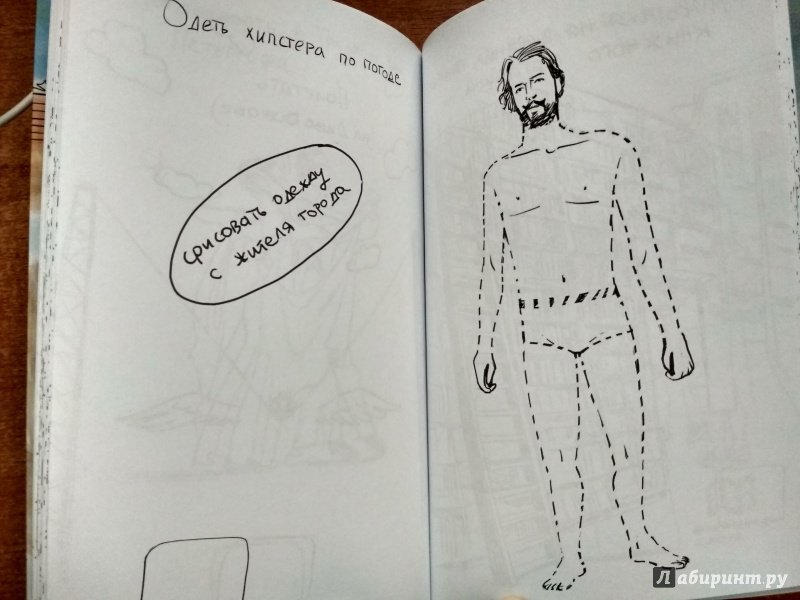 Одеть хипстера по погоде
срисовать одежду
с жителя города
Лабиринт.ру